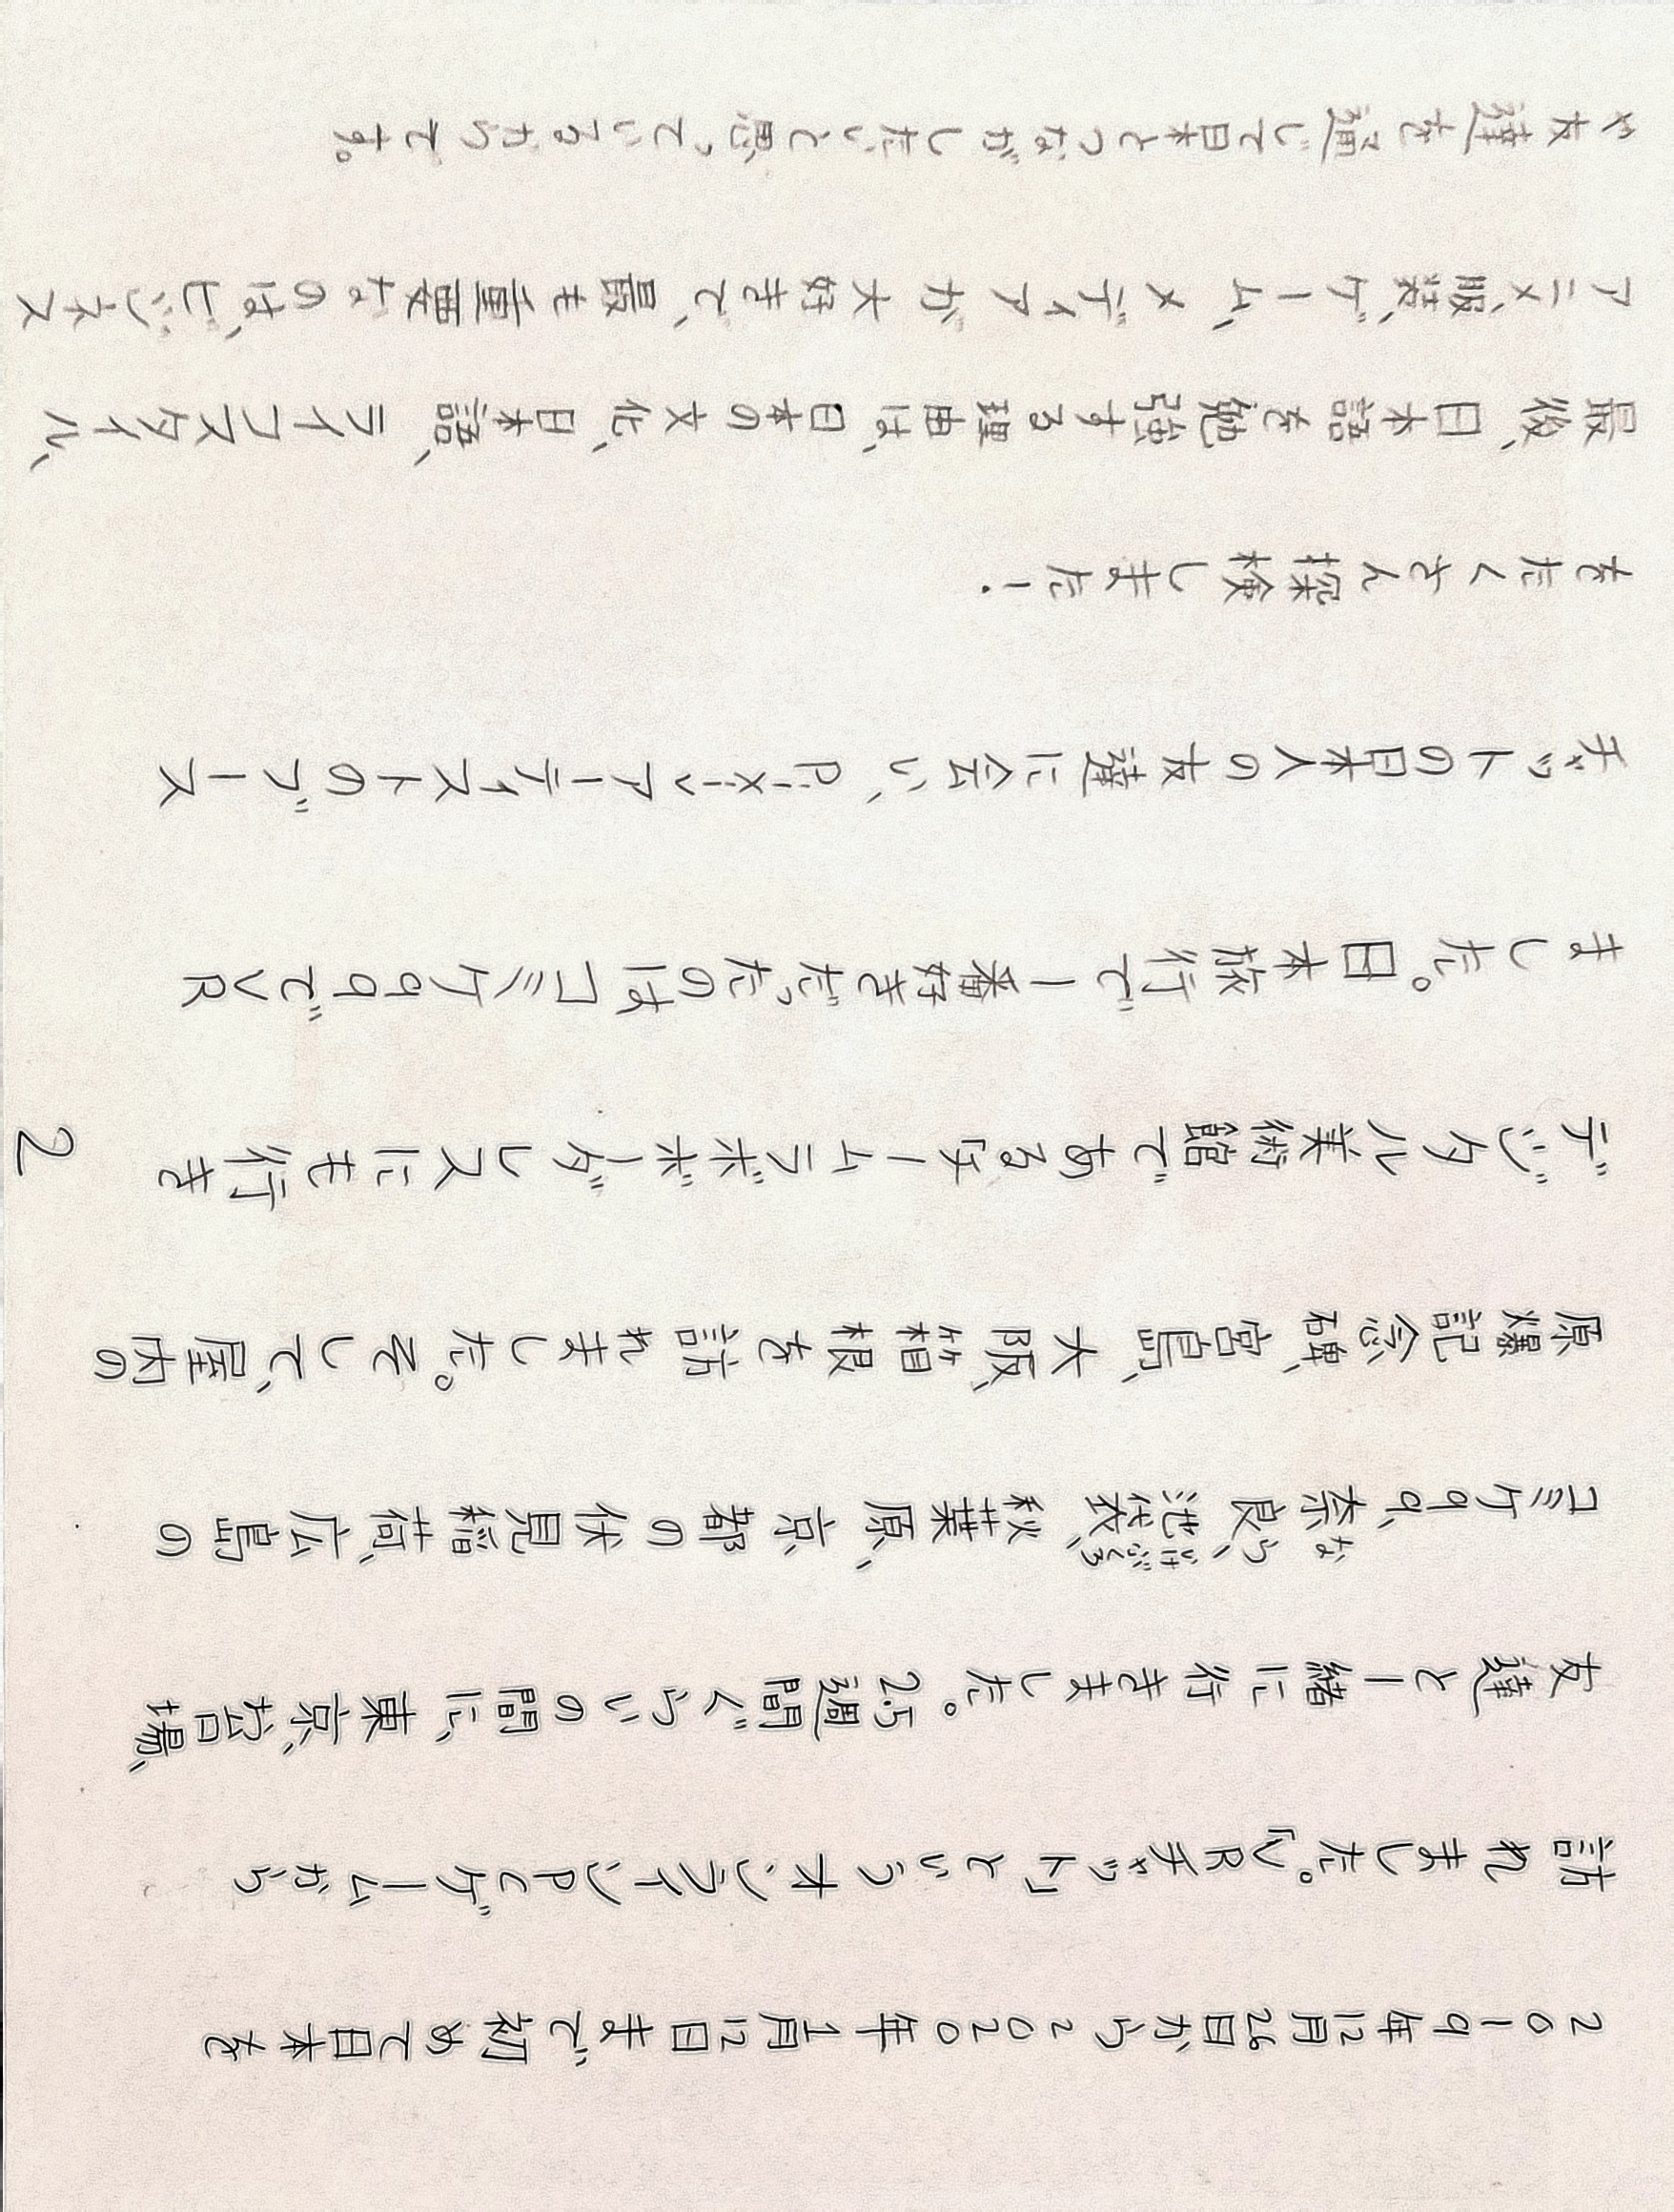 2019年12月26日から2020年1月12日まで初めて日本を
訪れました。「VRチャット」というオンラインPCゲームから
友達と一緒に行きました。2.5週間ぐらいの間に、東京、お台場、
コミケ99、奈良、池袋、秋葉原、京都の伏見稲荷、広島の
なら
いけぶくろ
原爆記念碑、宮島、大阪、箱根を訪れました。そして、屋内の
デジタル美術館である「チームラボボーダレスにも行き
ました。日本旅行で一番好きだったのは、コミケ99でVR
チャットの日本人の友達に会い、Pixivアーティストのブース
をたくさん探検しました!
最後、日本語を勉強する理由は、日本の文化、日本語、ライフスタイル、
アニメ、服装、ゲーム、メディアが大好きで、最も重要なのは、ビジネス
や友達を通じて日本とつながしたいと思っているからです。
2